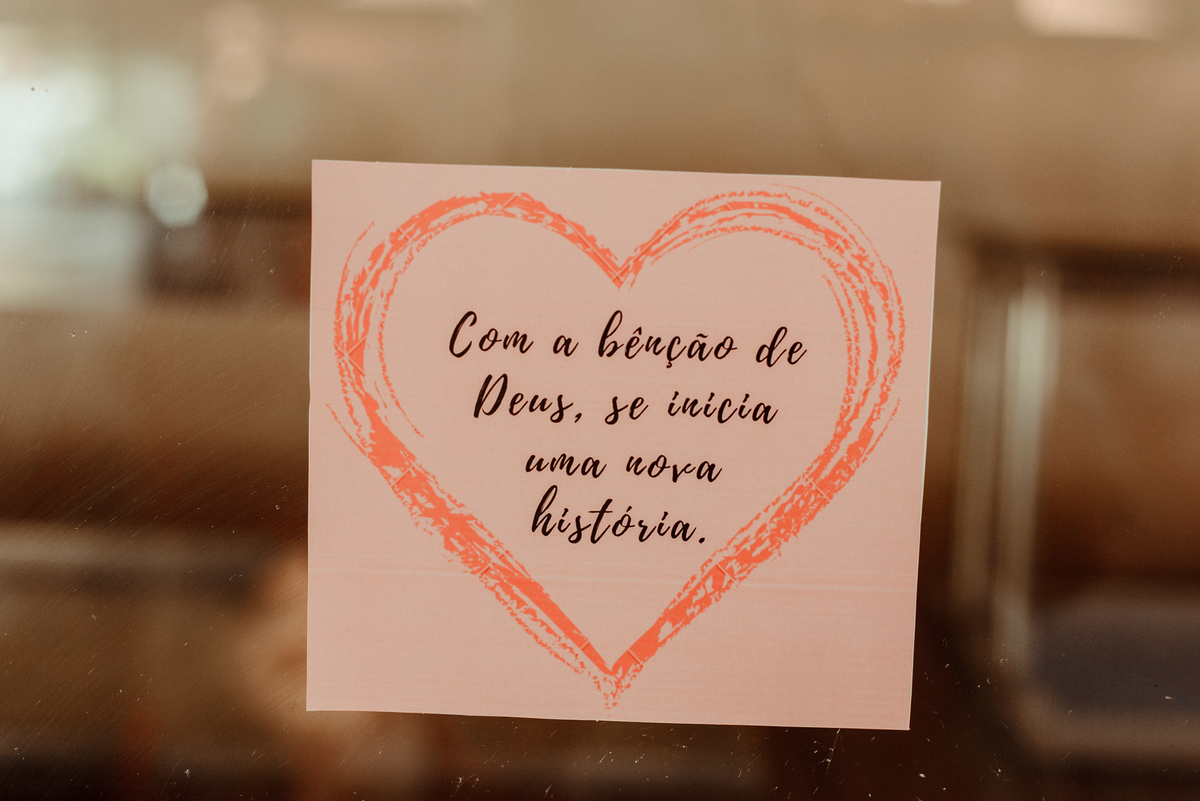 Com a bênção de
Deus, se inicia
uma nova
história.